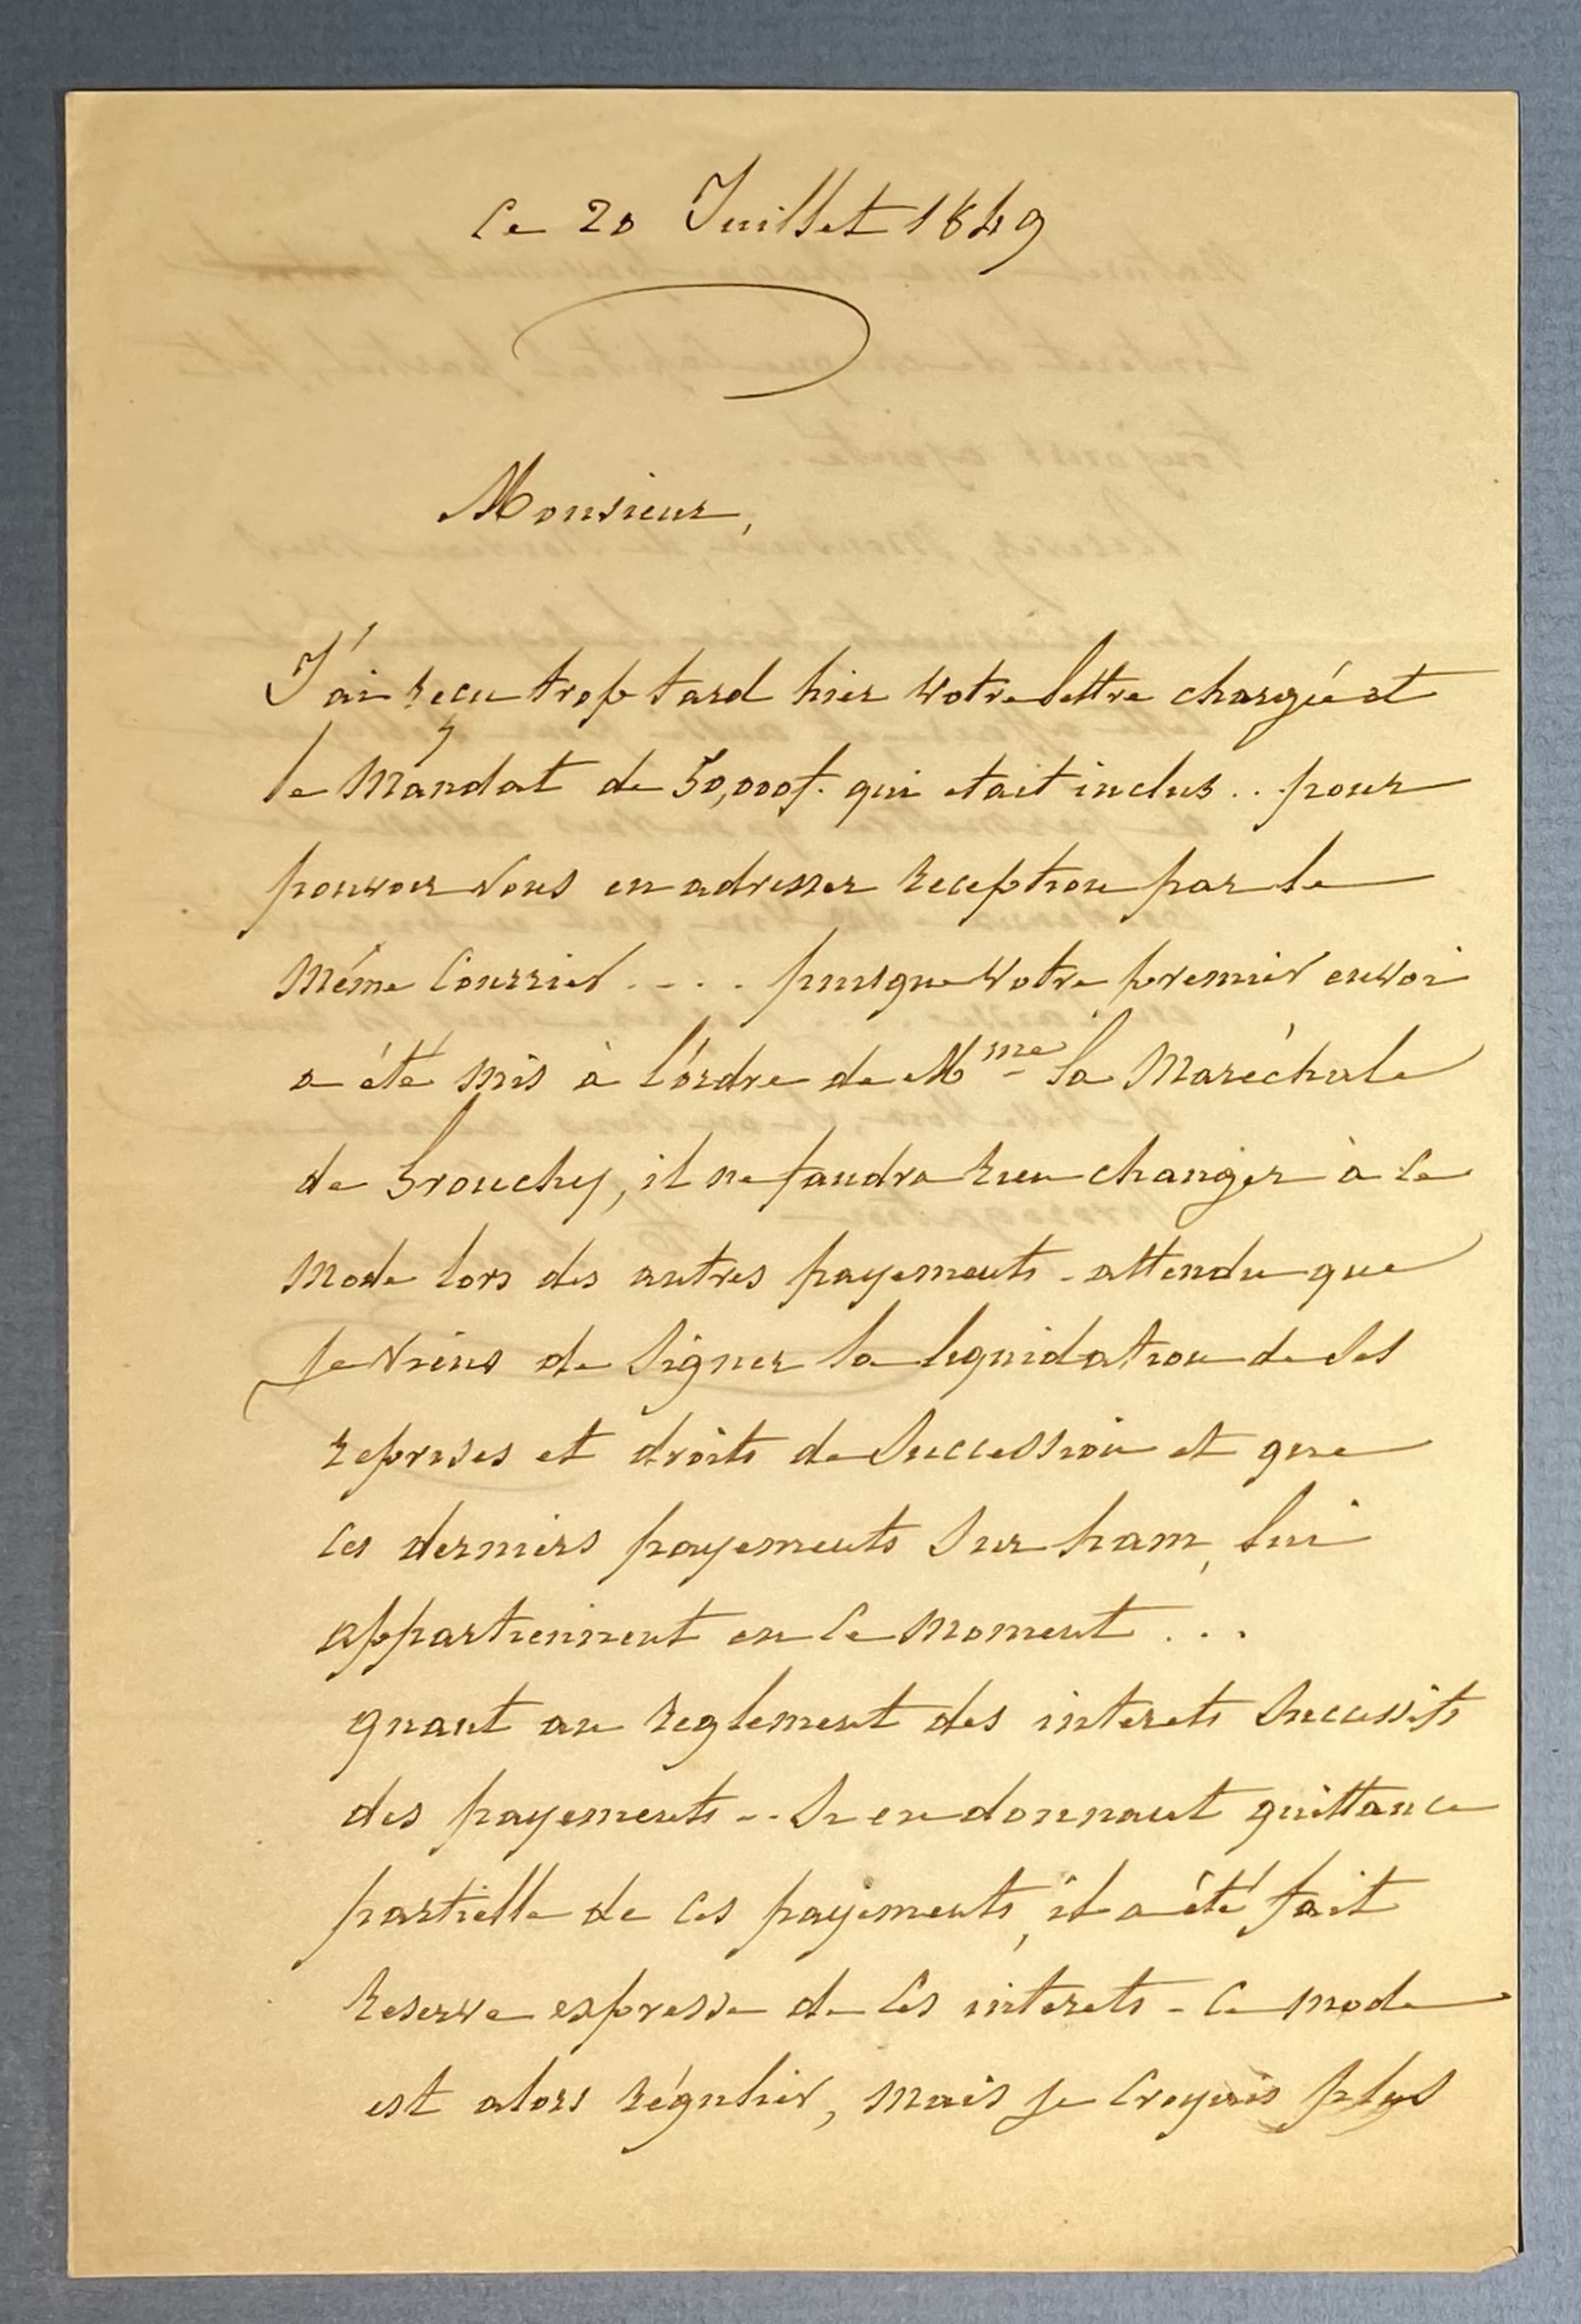 Ce 20 Juillet 1849
Monsieur,
J'ai reçu trop tard hier votre lettre chargée et
le Mandat de 50,000f. qui etait inclus .. pour
pouvoir vous en adresser reception par le
même Courrier .... puisque votre premier envoi
a été mis à l'ordre de Mme la Maréchale
de Grouchy, il ne faudra rien changer à ce
mode lors des autres payements - attendu que
je viens de signer la liquidation de ses
reprises et droits de Succession et que
ces derniers payements sur ham, lui
appartiennent en ce moment ...
quant au reglement des interets successifs
des payements -- Si en donnant quittance
partielle de ces payements, il a été fait
reserve expresse de ces interets - ce mode
est alors régulier, mais je croyais plus